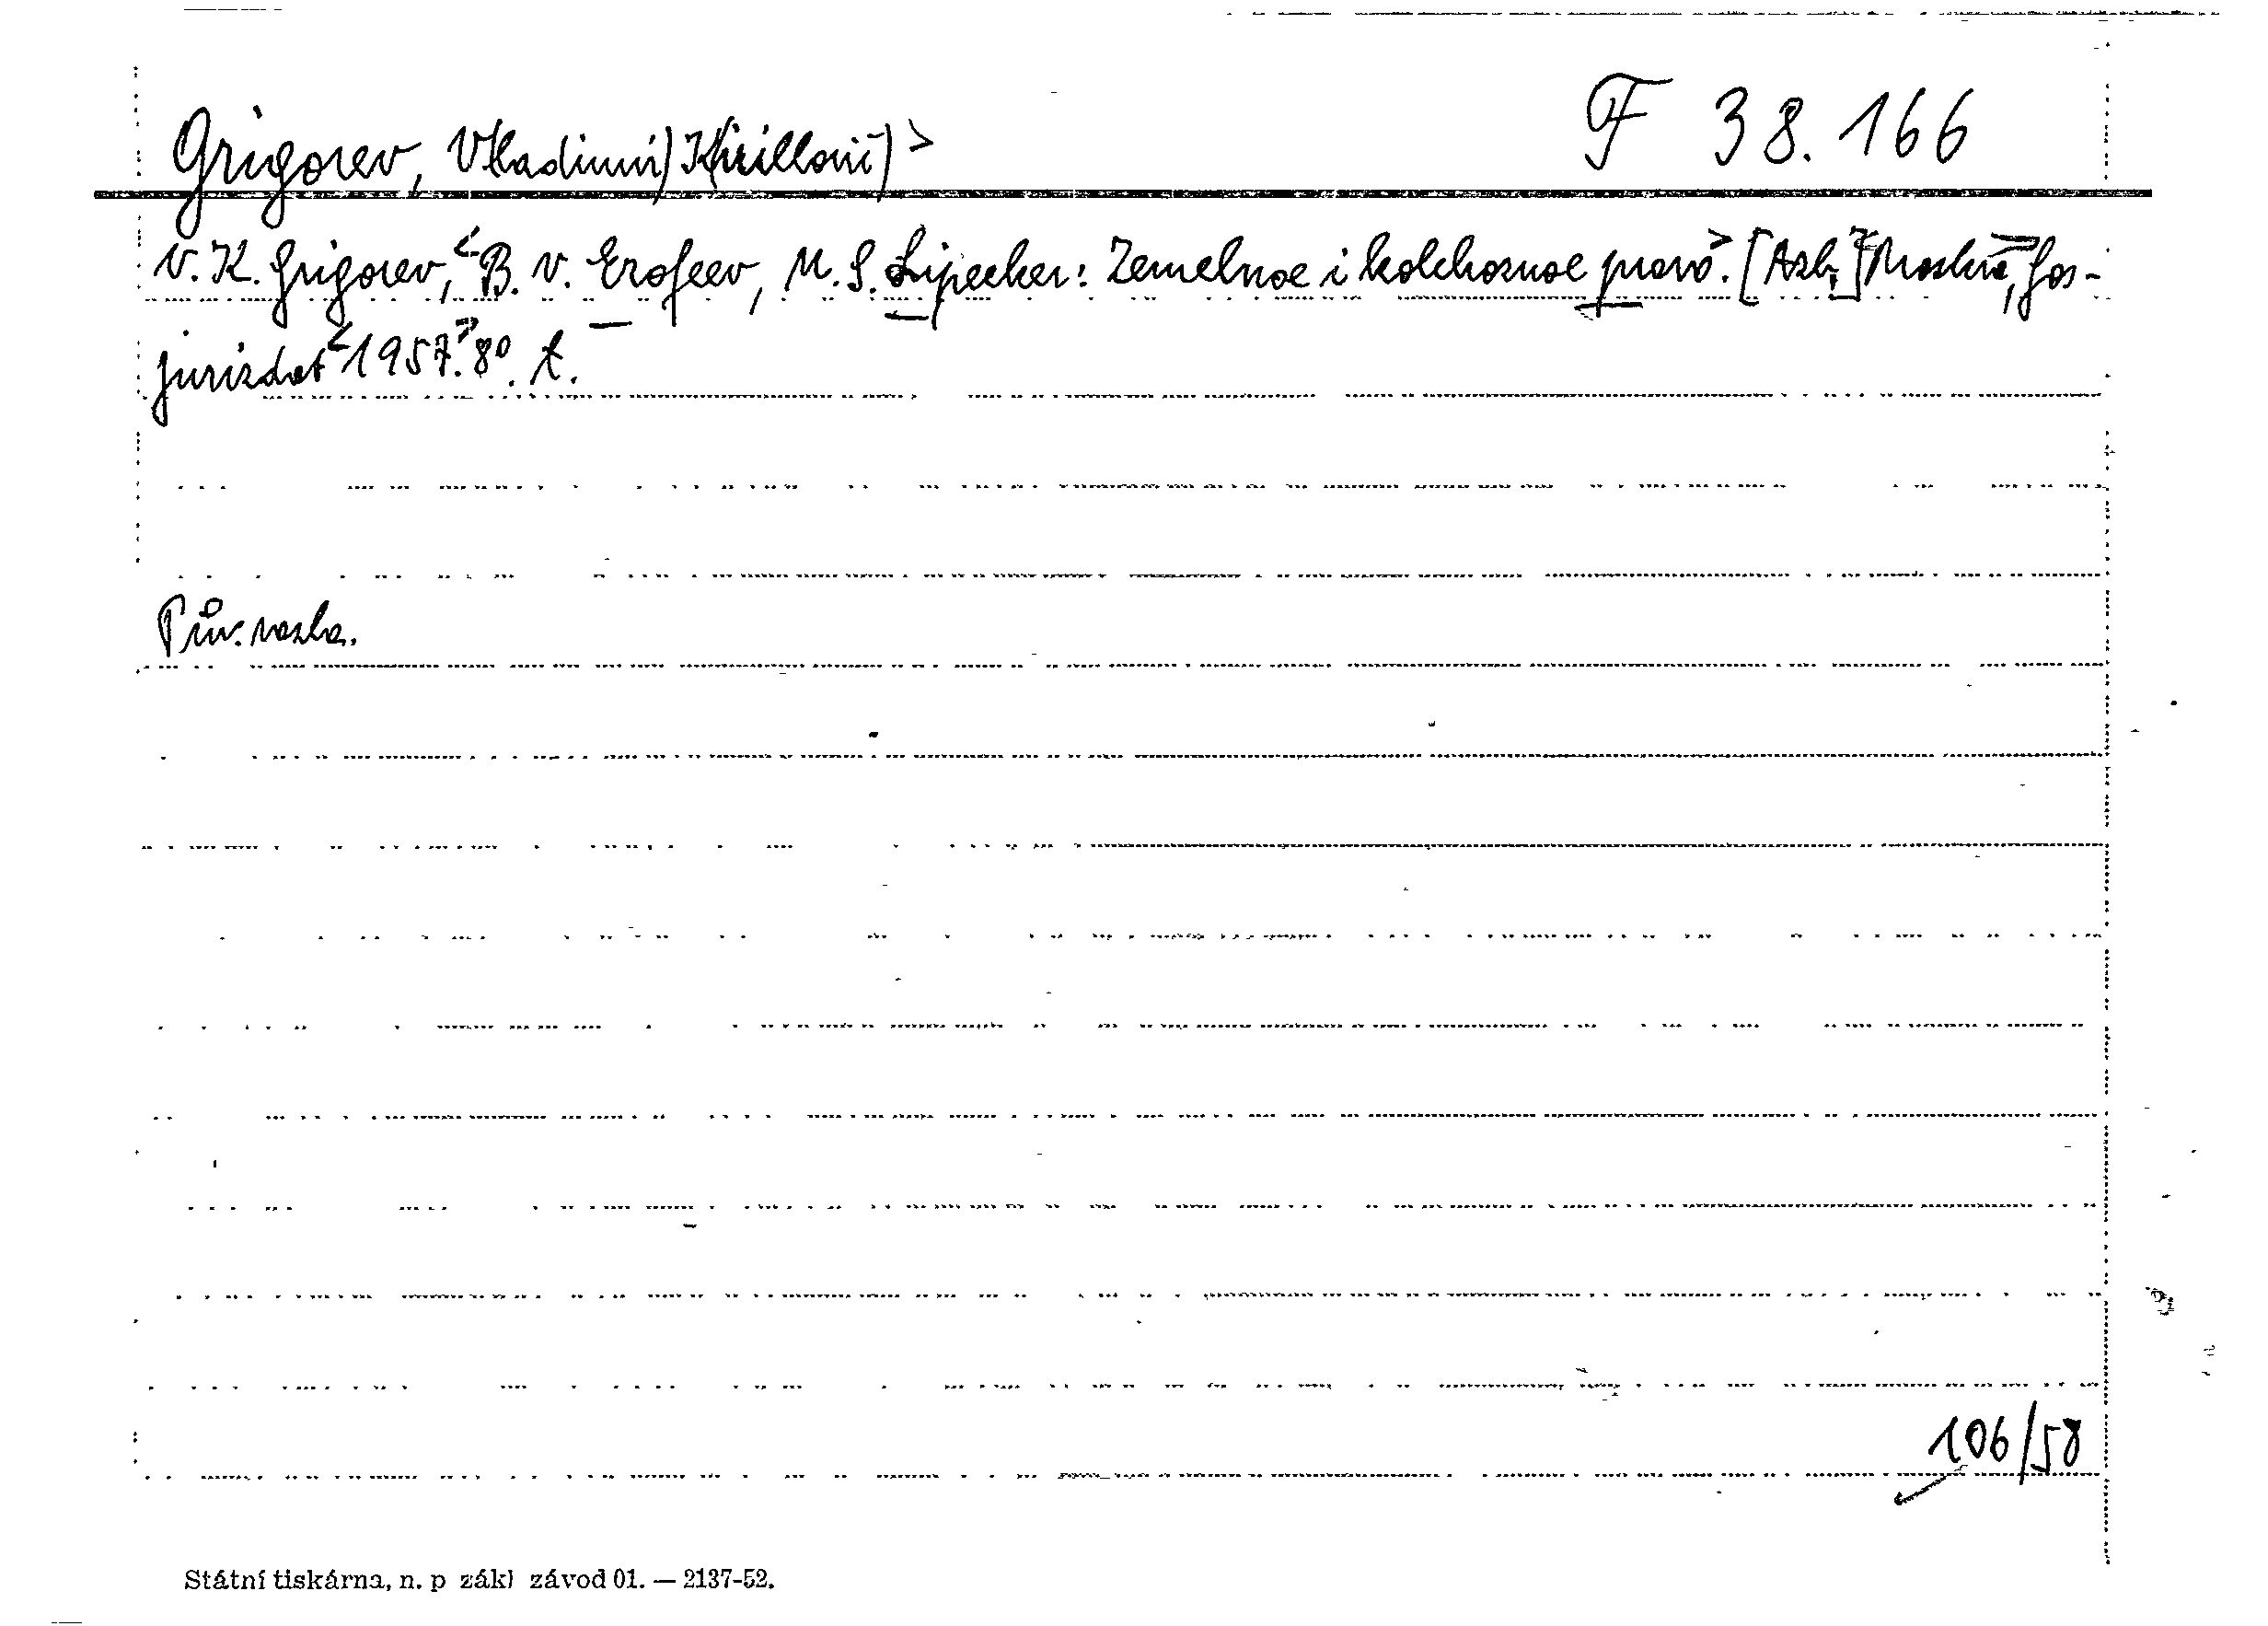 Grigorev, V(ladimir) K(irillovič) > F 38.166
V. K. Grigorev, < B. V. Erofeev, M. S. Lipecker: Zemelnoe i kolchoznoe pravo. > [Azb.] < Moskva, > Gos-
jurizdat < 1957. > 8°. t.
Pův. vazba.
106/58
Státní tiskárna, n. p zákl závod 01. — 2137-52.